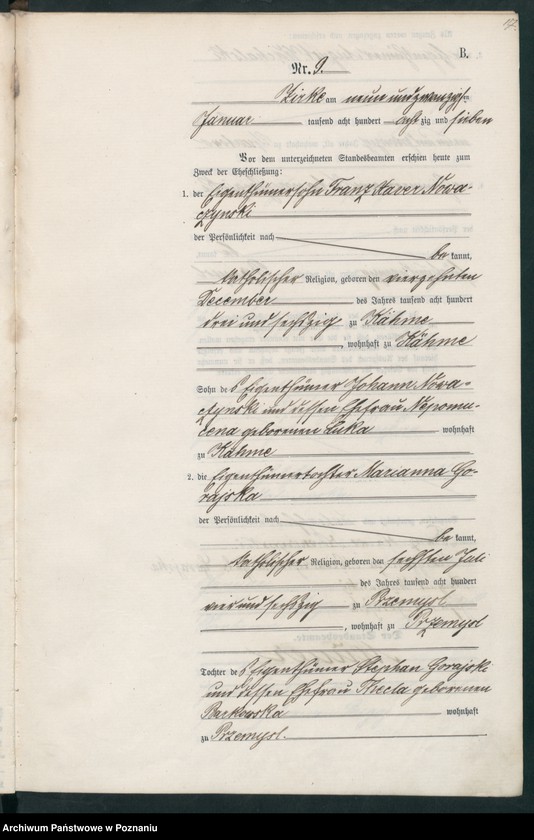 B.
Nr. 9.
Zirke am neun und zwanzigsten
Januar tausend acht hundert acht zig und sieben
Vor dem unterzeichneten Standesbeamten erschien heute zum
Zweck der Eheschließung:
1. der Eigenthümersohn Franz Xaver Nowa-
czynski
der Persönlichkeit nach
be kannt,
katholischer Religion, geboren den vierzehnten
December des Jahres tausend acht hundert
drei und sechszig zu Kähme
, wohnhaft zu Kähme
Sohn des Eigenthümer Johann Nowa-
czynski und dessen Ehefrau Nepomu-
cena geborenen Luka wohnhaft
zu Kähme
2. die Eigenthümertochter Marianna Go-
rajska
der Persönlichkeit nach
be kannt,
katholischer Religion, geboren den sechsten Juli
des Jahres tausend acht hundert
vier und sechszig zu Przemysl
, wohnhaft zu Przemysl
Tochter des Eigenthümer Stephan Gorajski
und dessen Ehefrau Thecla geborenen
Barkowska wohnhaft
zu Przemysl.
Archiwum Państwowe w Poznaniu